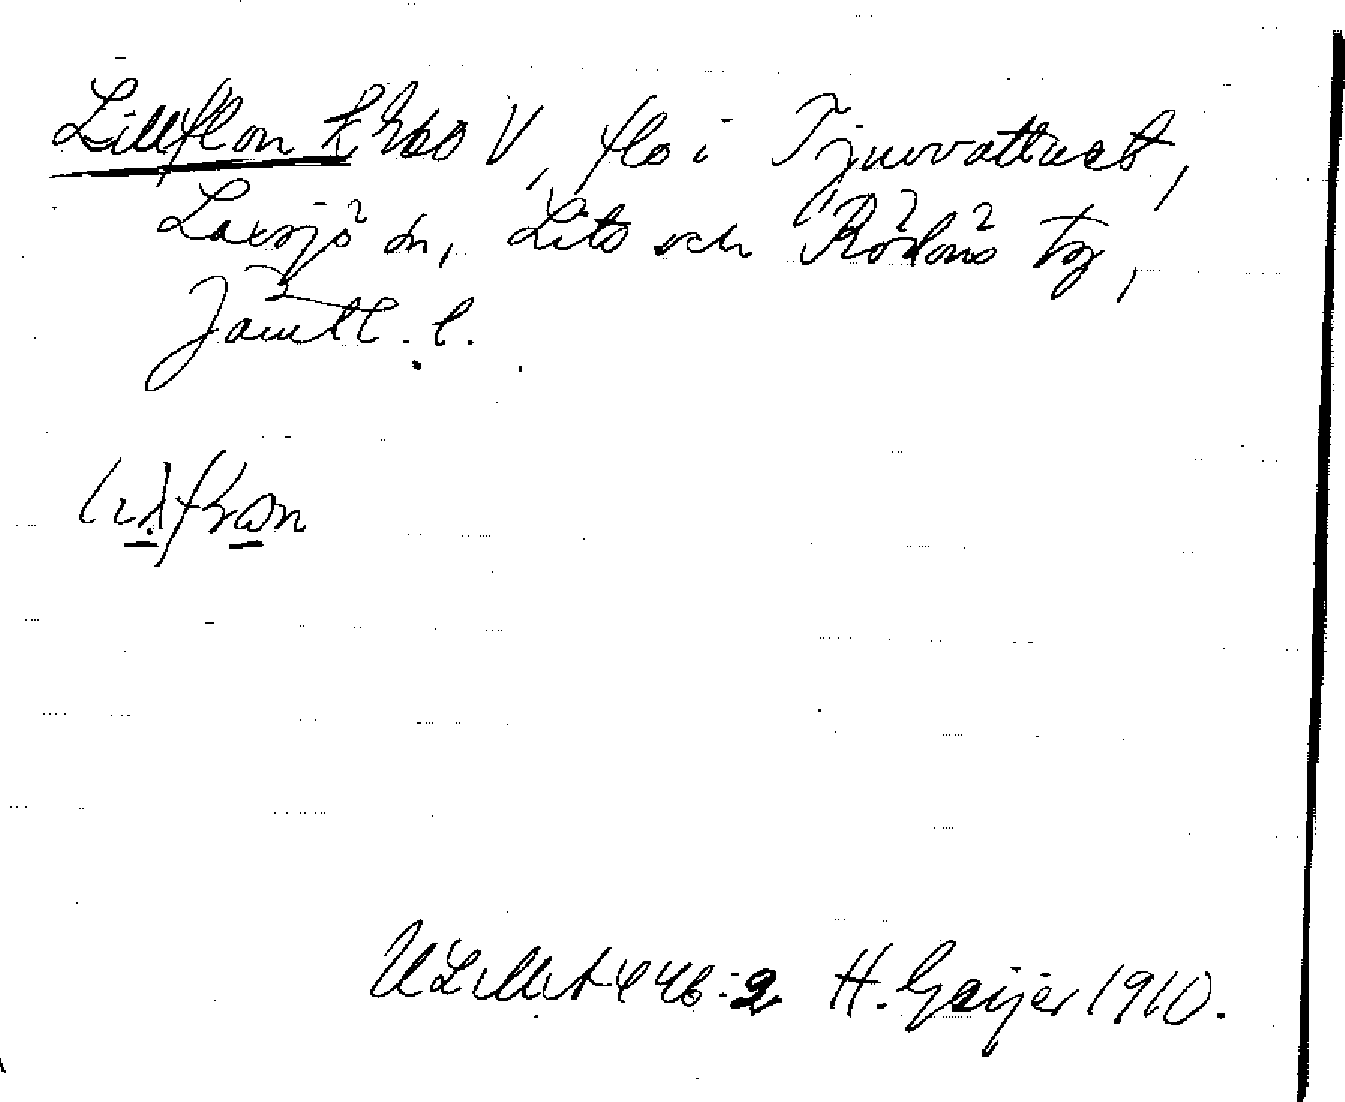 Lillflon V, flo i Tjuvvattnet,
Laxsjö sn, Lits och Rödöns tg,
Jämtl. l.
ULMA 446:2 H. Geijer 1910.